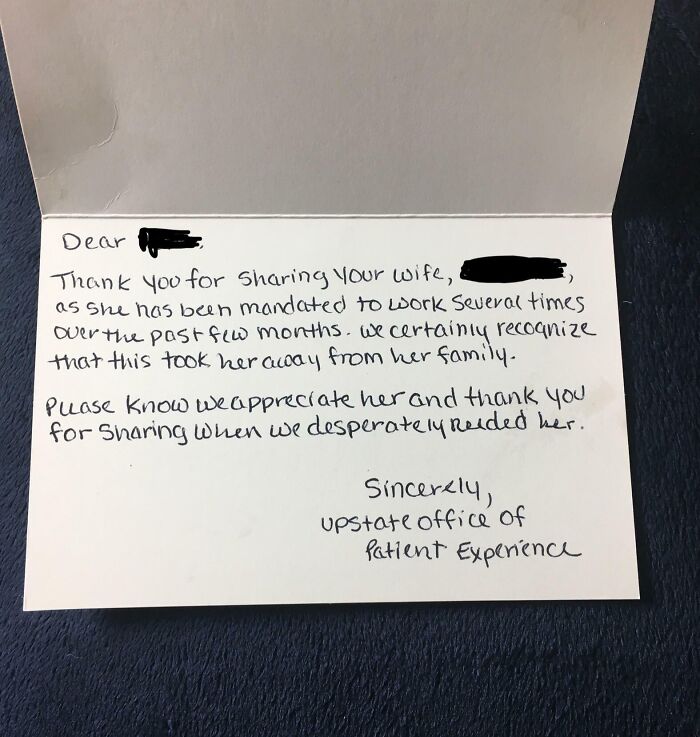 Dear
Thank you for sharing your wife,        ,
as she has been mandated to work several times
over the past few months. we certainly recognize
that this took her away from her family.
Please know we appreciate her and thank you
for sharing when we desperately needed her.
Sincerely,
upstate office of
Patient Experience